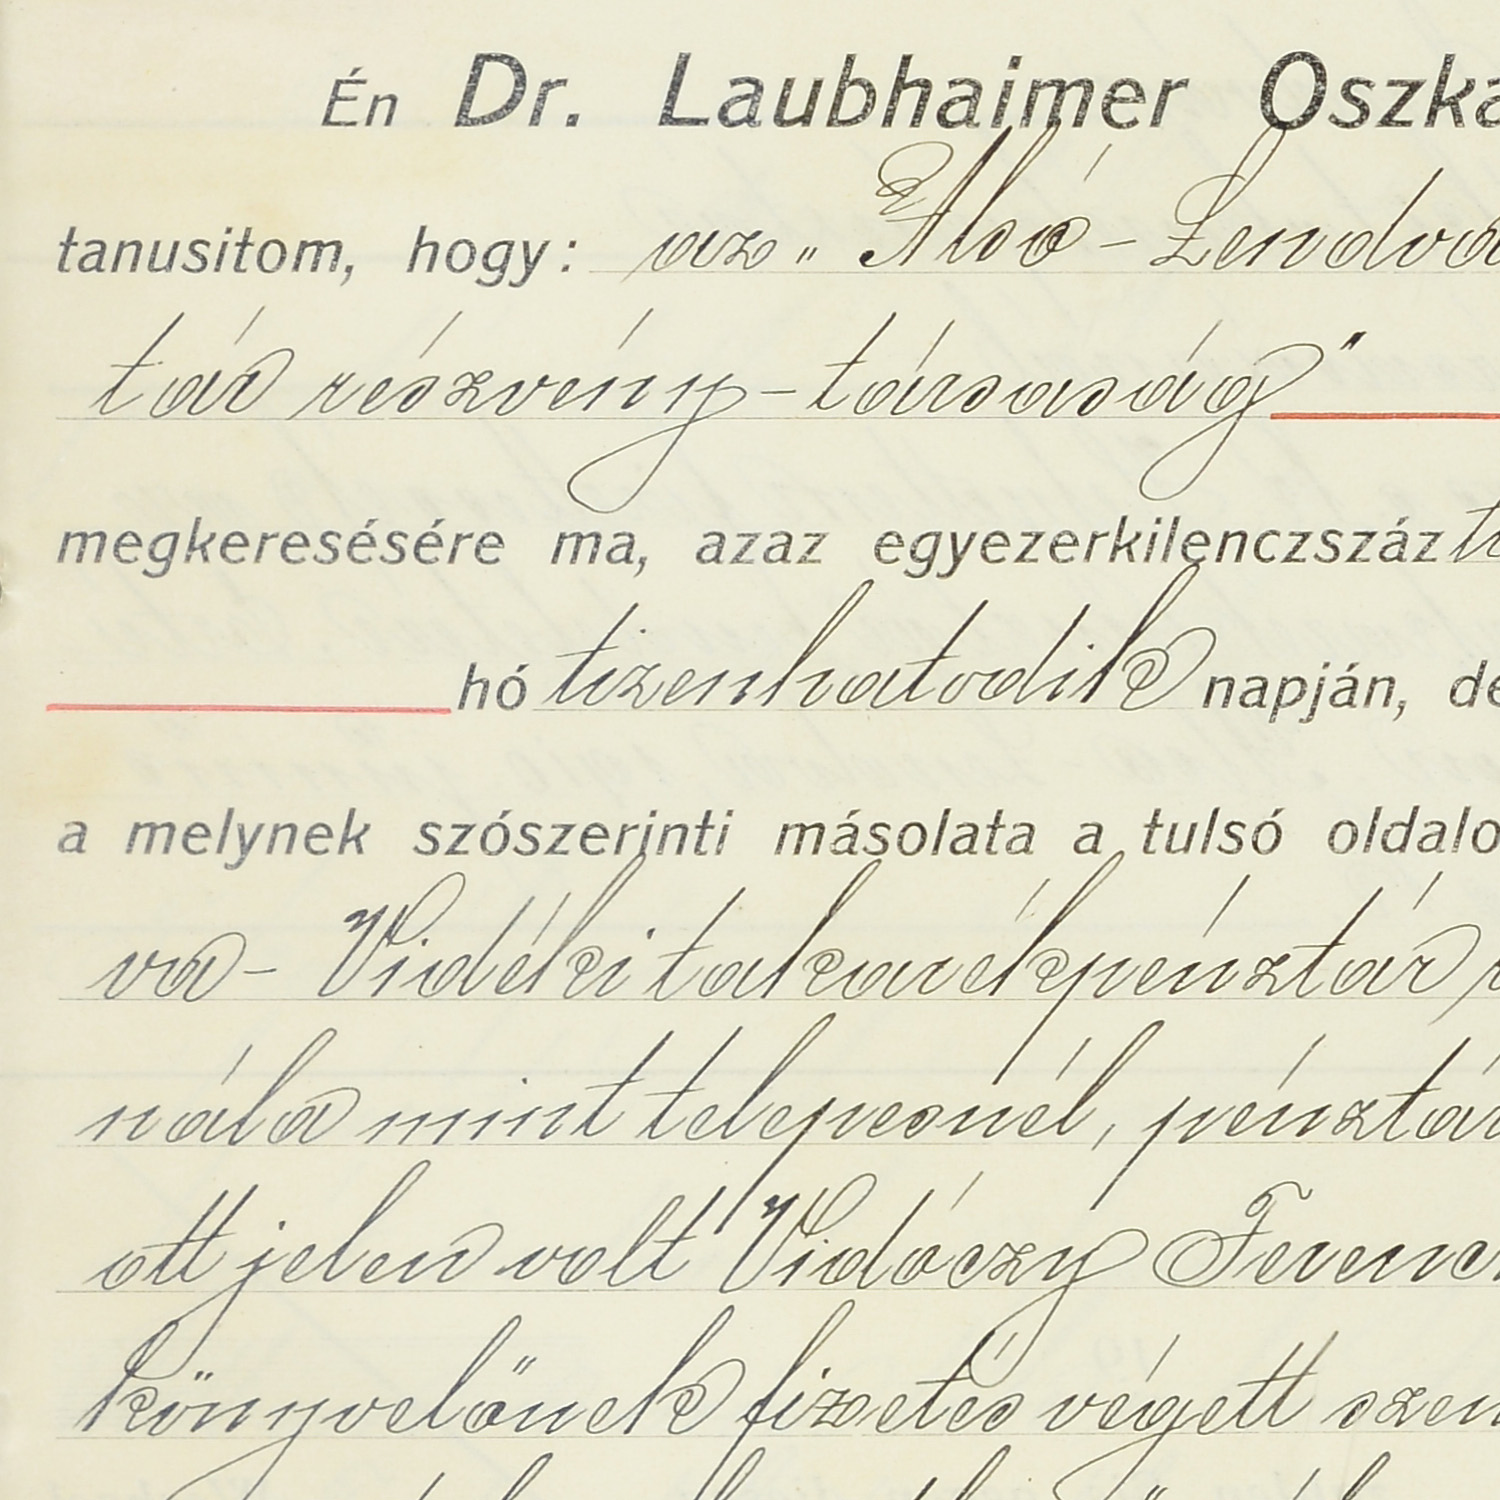 Én Dr. Laubhaimer Oszká
tanusitom, hogy: az „Alsó-Lendva
tár részvény-társaság"
megkeresésére ma, azaz egyezerkilenczszáz ti
hó tizenhatodik napján, dé
a melynek szószerinti másolata a tulsó oldalo
va-Vidéki takarékpénztár r
nála mint telepesnél, pénztár
ott jelen volt Vidóczy Ferenc
könyvelőnek fizetés végett szem